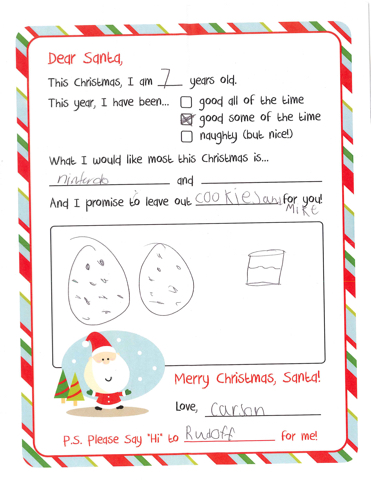 Dear Santa,
This Christmas, I am 7 years old.
This year, I have been... good all of the time
good some of the time
naughty (but nice!)
What I would like most this Christmas is...
nintendo and
And I promise to leave out cookie and for you!
Milk
Merry Christmas, Santa!
Love, carson
P.S. Please Say "Hi" to Rudolf for me!